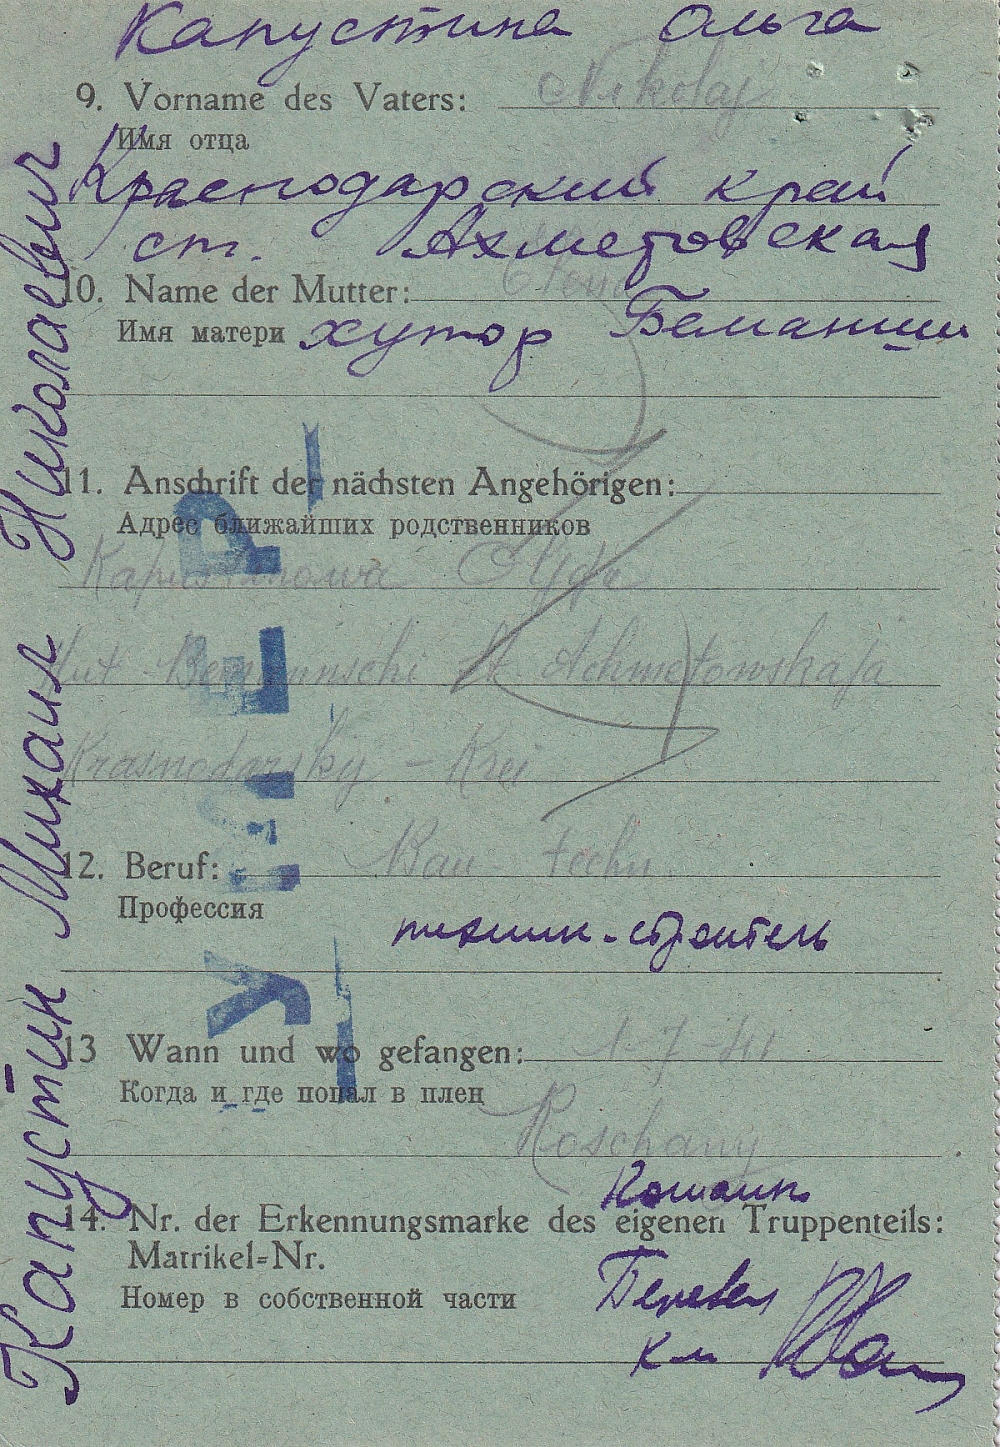 Капустина Ольга
9. Vorname des Vaters: Nikolaj
Имя отца
Краснодарский край
ст. Ахметовская
10. Name der Mutter:
Имя матери хутор Беманши
11. Anschrift der nächsten Angehörigen:
Адрес ближайших родственников
Olga
Hut - St. Achmetowskaja
Krasnodarsky - Krei
12. Beruf: Bau techn.
Профессия
техник-строитель
13 Wann und wo gefangen: 1-7-41
Когда и где попал в плен
Roschany
14. Nr. der Erkennungsmarke des eigenen Truppenteils:
Matrikel-Nr.
Номер в собственной части
Перевел
Капустин Михаил Николаевич
УМЕР